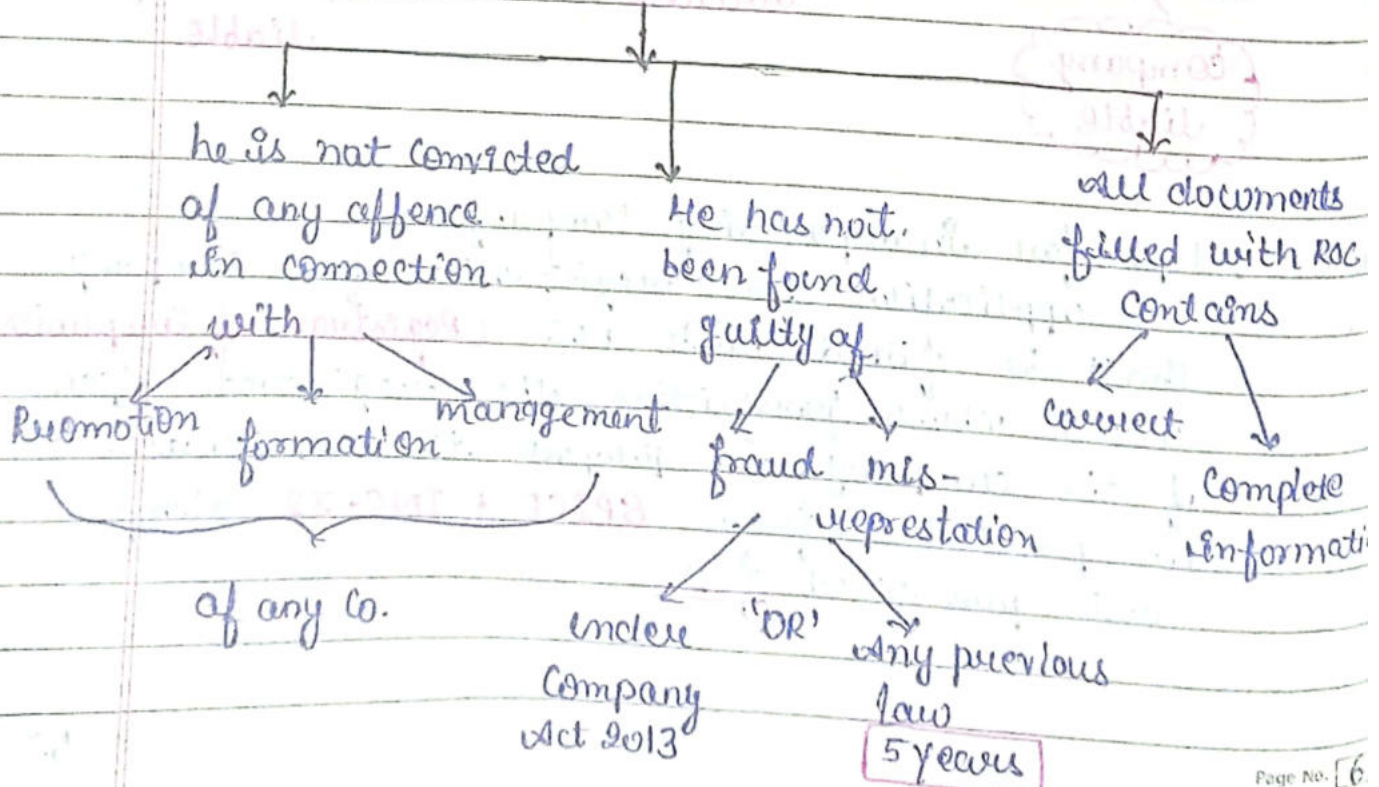 he is not convicted
of any offence
in connection
with
Promotion
formation
management
of any Co.
He has not
been found
guilty of
fraud mis-
represtation
under
Company
Act 2013
"OR'
Any previous
law
5 years
All documents
filled with ROC
Contains
Correct
Complete
informati
Page No. 6